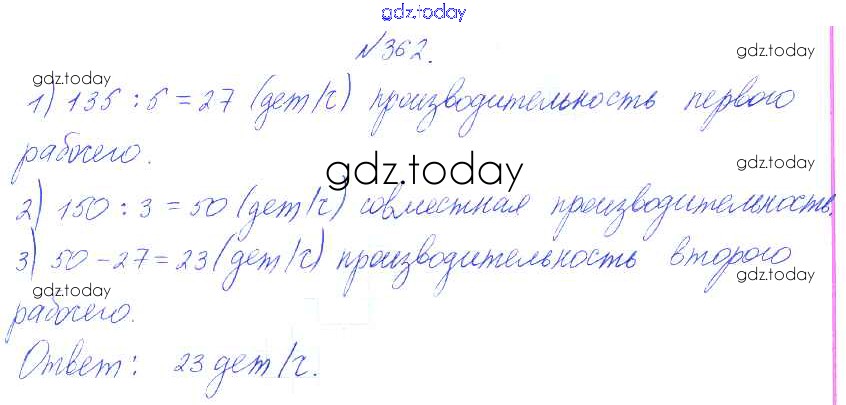 gdz.today
№362.
gdz.today
gdz.today
1) 135 : 5 = 27 (дет/ч) производительность первого
рабочего.
gdz.today
gdz.today
2) 150 : 3 = 50 (дет/ч) совместная производительность.
3) 50 - 27 = 23 (дет/ч) производительность второго
gdz.today
gdz.today
рабочего.
Ответ: 23 дет/ч.